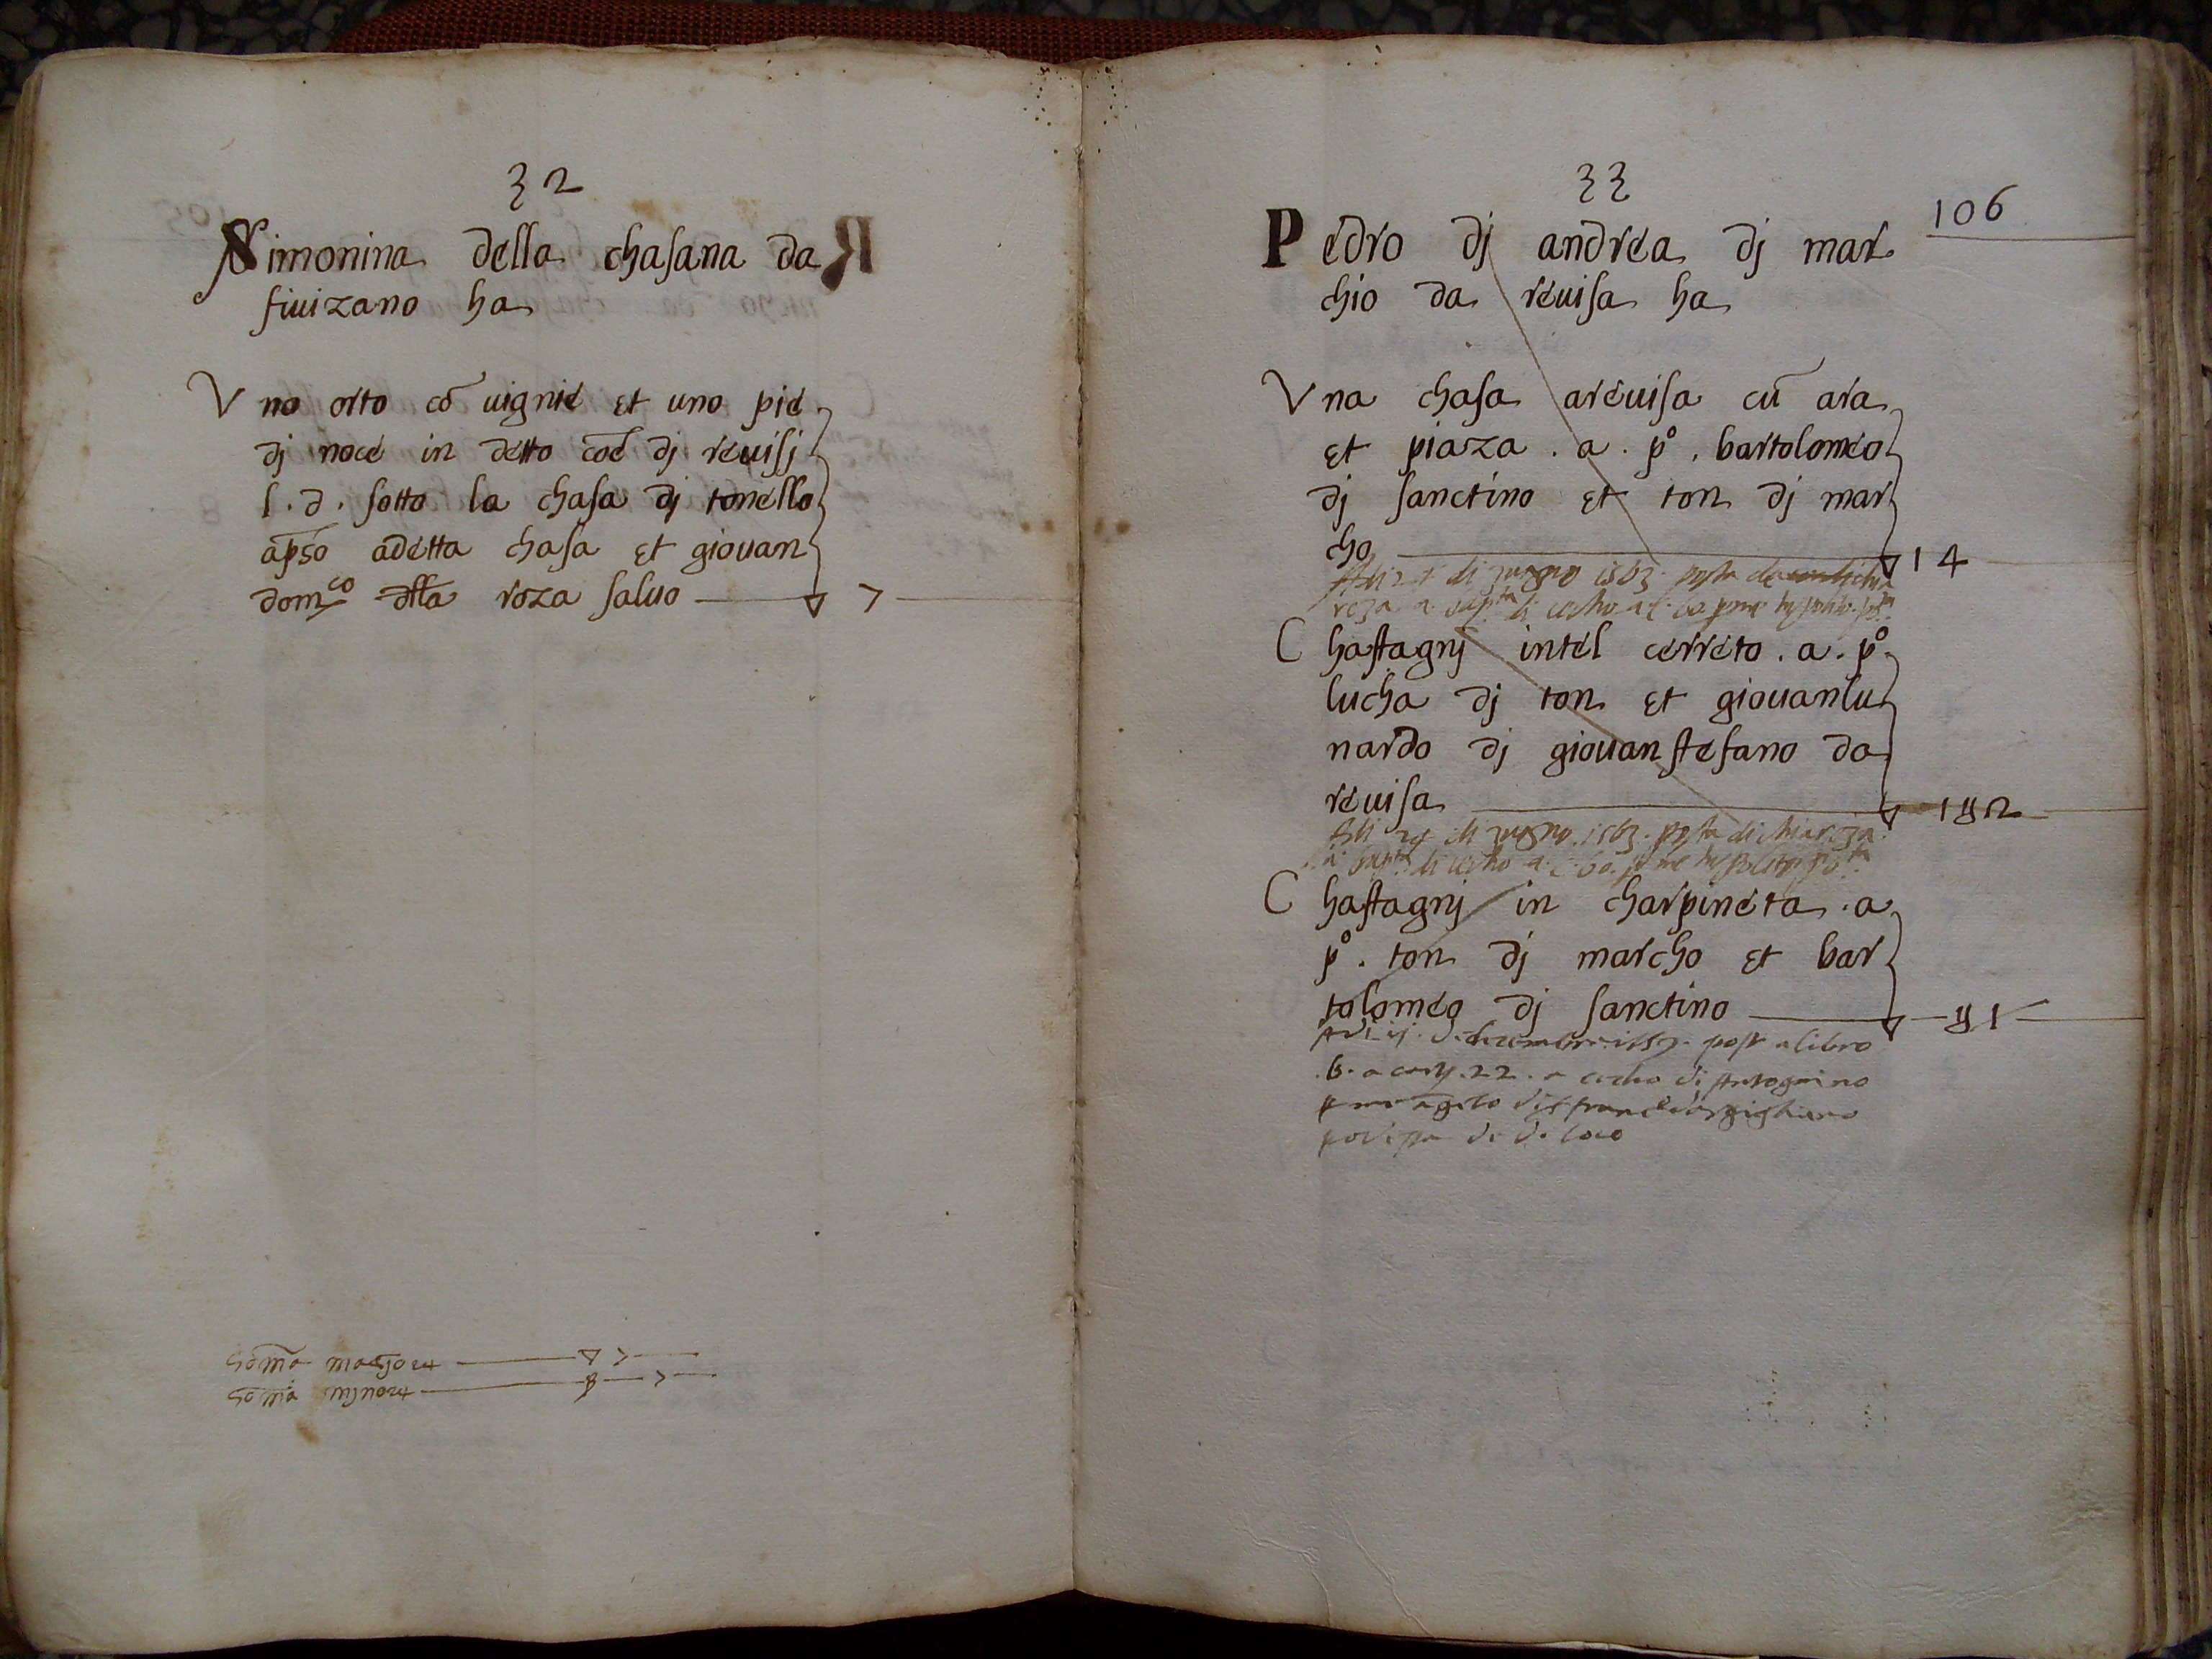 32
Simonina della chasana da
fiuizano ha
Vno orto cō uignie et uno pie
dj noce in detto coē dj reuisj
l. d. sotto la chasa dj tonello
apſo adetta chasa et giouan
domco dlla roza saluo 7
Soma magiore 7
Soma mjnore 7
33
106
Pedro dj andrea dj mar
chio da reuisa ha
Vna chasa areuisa cū ara
et piaza . a . po . bartolomeo
dj sanctino et ton dj mar
cho 14
di zugno 1563 posta
roza a
Chastagnj intel cerreto . a . po
lucha dj ton et giouanlu
nardo dj giouan stefano da
reuisa 182
Adi 24 di zugno 1563 posta di chiaroza
a
Chastagnj in charpineta . a
po . ton dj marcho et bar
tolomeo dj sanctino 81
Adi decembre post a libro
.B. a cart. 22 . a cecho di Antognino
di d. loco